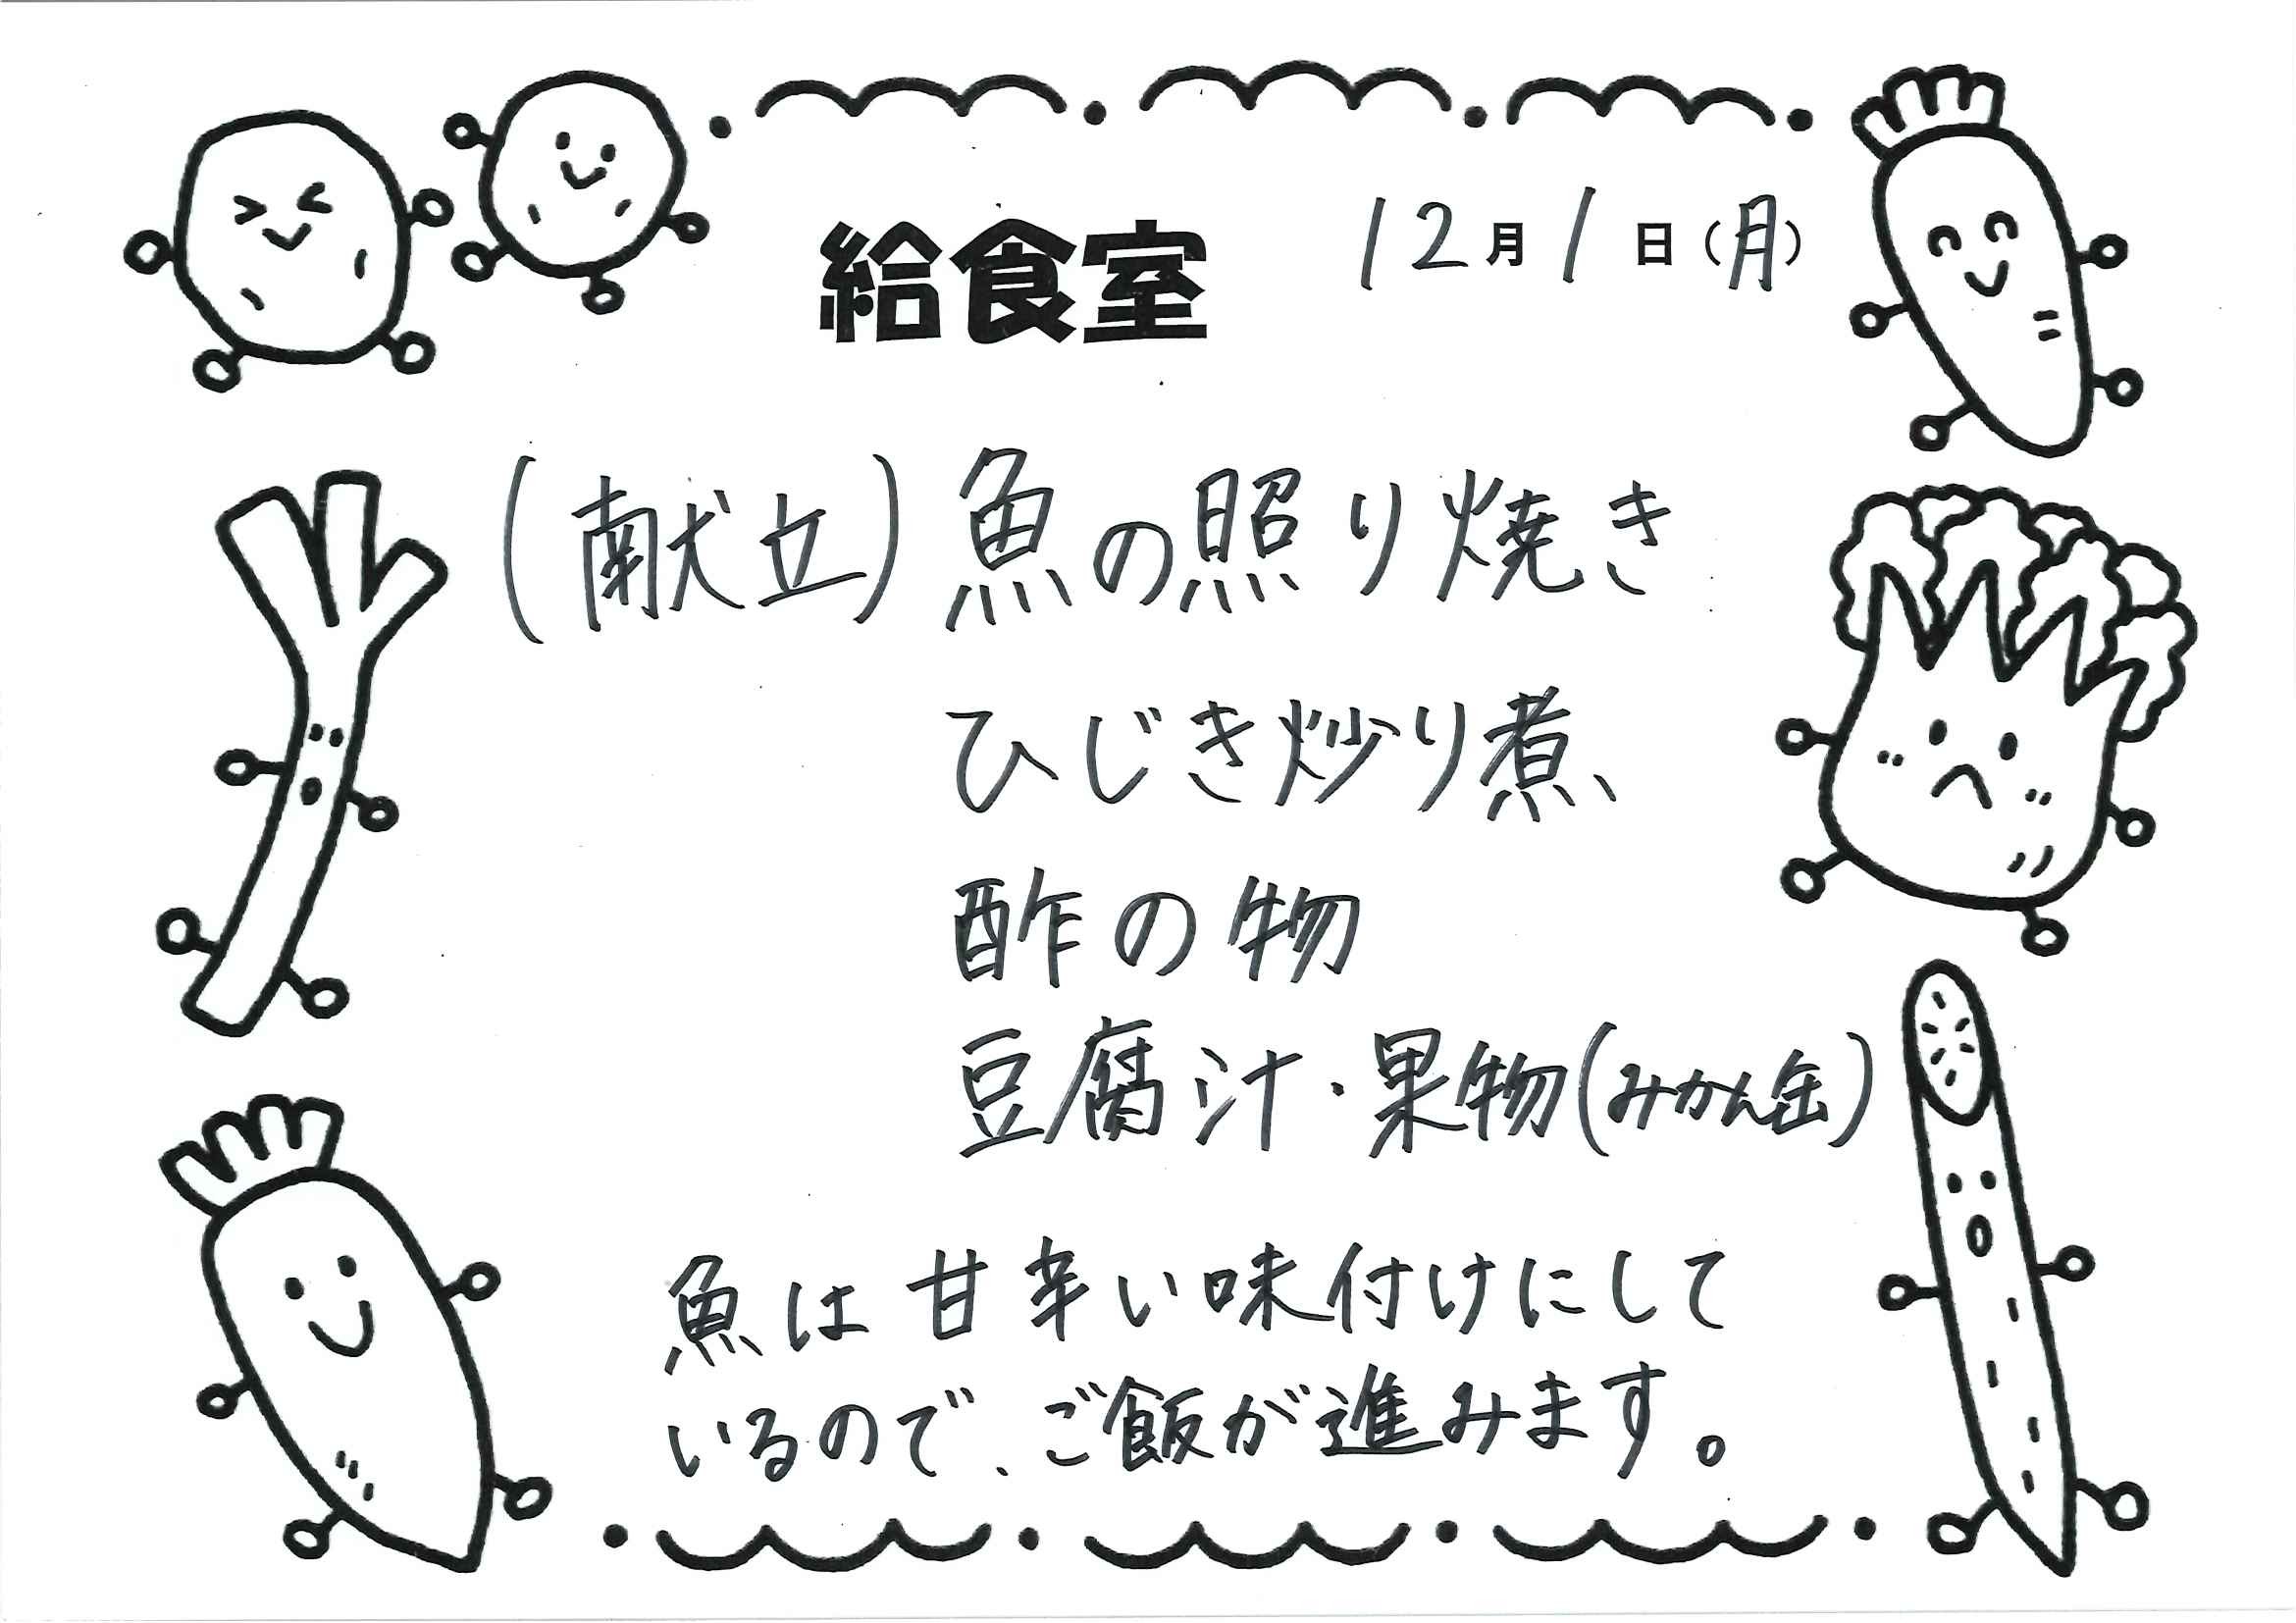 給食室 12月1日(月)
(献立)魚の照り焼き
ひじき炒り煮
酢の物
豆腐汁・果物(みかん缶)
魚は甘辛い味付けにして
いるので、ご飯が進みます。